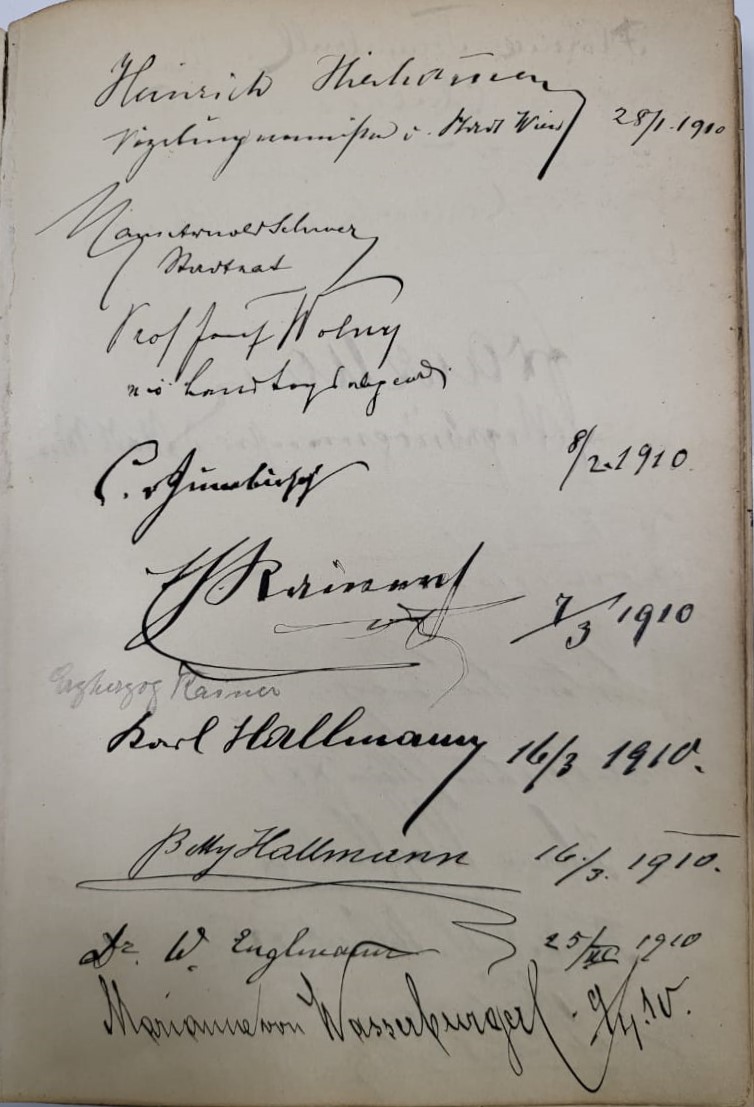 Heinrich Hierhammer
Vizebürgermeister d. Stadt Wien 28/1. 1910
Hans Arnold Schwer
Stadtrat
Prof Josef Wolny
nö Landtagsabgeord.
C. v 8/2. 1910
Rainer 7/3 1910
Erzherzog Rainer
Karl Hallmann 16/3 1910.
Betty Hallmann 16./3. 1910.
Dr. W. Englmann 25/III 1910
Marianne von Wasserburger 9/4. 10.